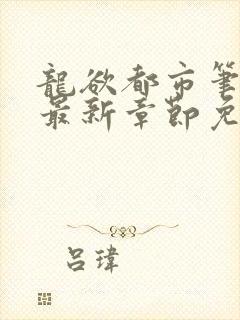 龍欲都市筆
最新章節免
吕瑋